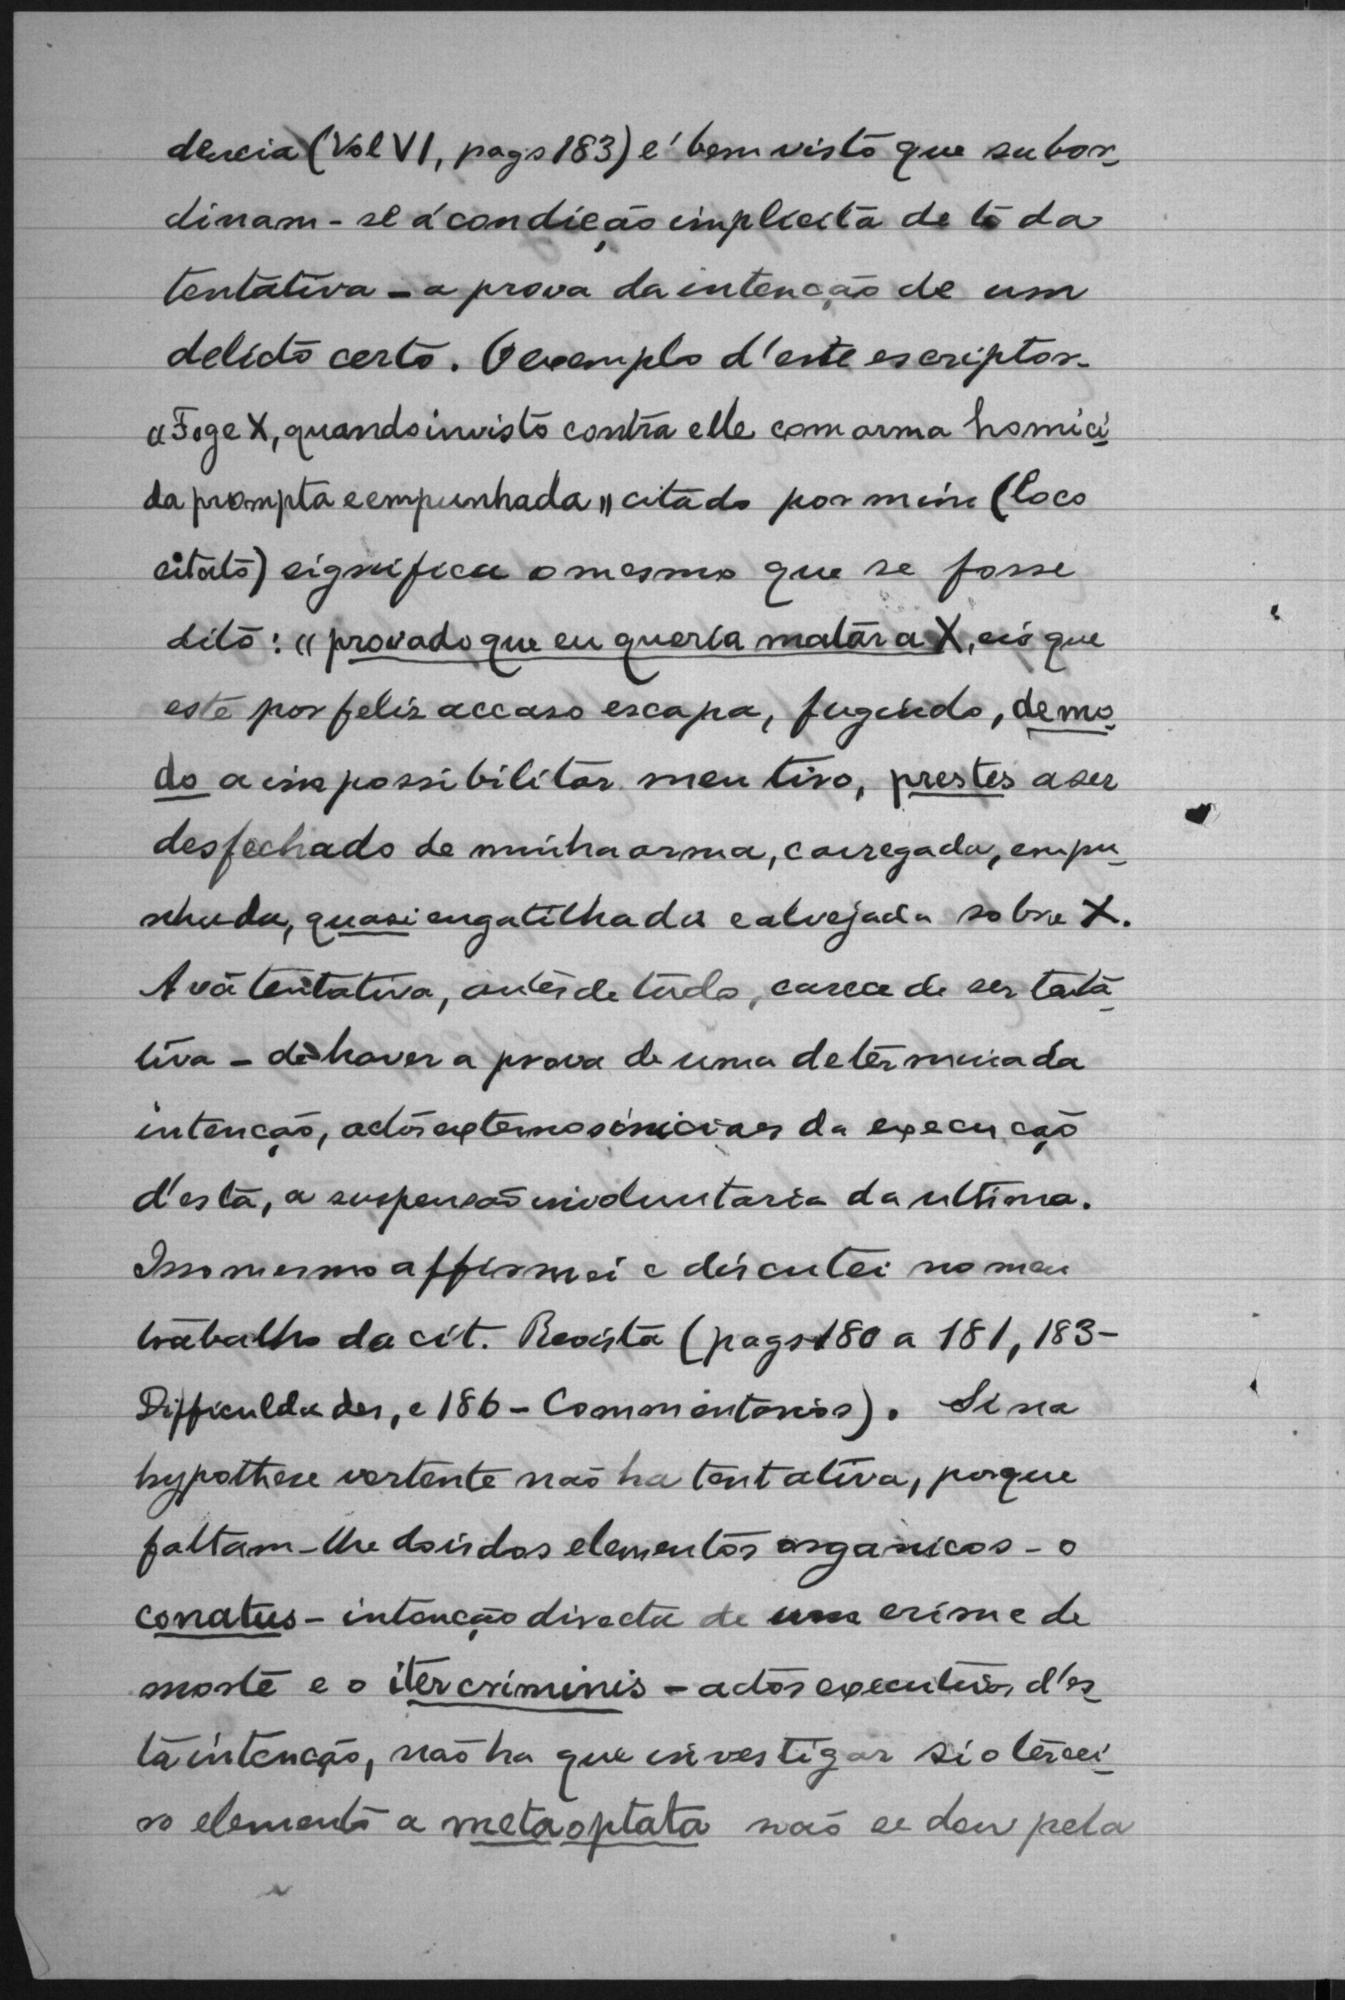 dencia (Vol VI, pags 183) é bem visto que subor-
dinam-se á condição implicita de toda
tentativa - a prova da intenção de um
delicto certo. O exemplo d'este escriptor -
"Foge X, quando invisto contra elle com arma homici-
da prompta e empunhada" citado por mim (loco
citato) significa o mesmo que se fosse
dito: "provado que eu queria matar a X, eis que
este por feliz accaso escapa, fugindo, de mo-
do a impossibilitar meu tiro, prestes a ser
desfechado de minha arma, carregada, empu-
nhada, quasi engatilhada e alvejada sobre X.
A vã tentativa, antes de tudo, carece de ser tenta-
tiva - de haver a prova de uma determinada
intenção, actos externos iniciaes da execução
d'esta, a suspensão involuntaria da ultima.
Isso mesmo affirmei e discutei no meu
trabalho da cit. Revista (pags 180 a 181, 183-
Difficuldades, e 186 - Commentarios). Si na
hypothese vertente não ha tentativa, porque
faltam-lhe dois dos elementos organicos - o
conatus - intenção directa de um crime de
morte e o iter criminis - actos executivos d'es-
ta intenção, não ha que investigar si o tercei-
ro elemento a meta optata não se deu pela